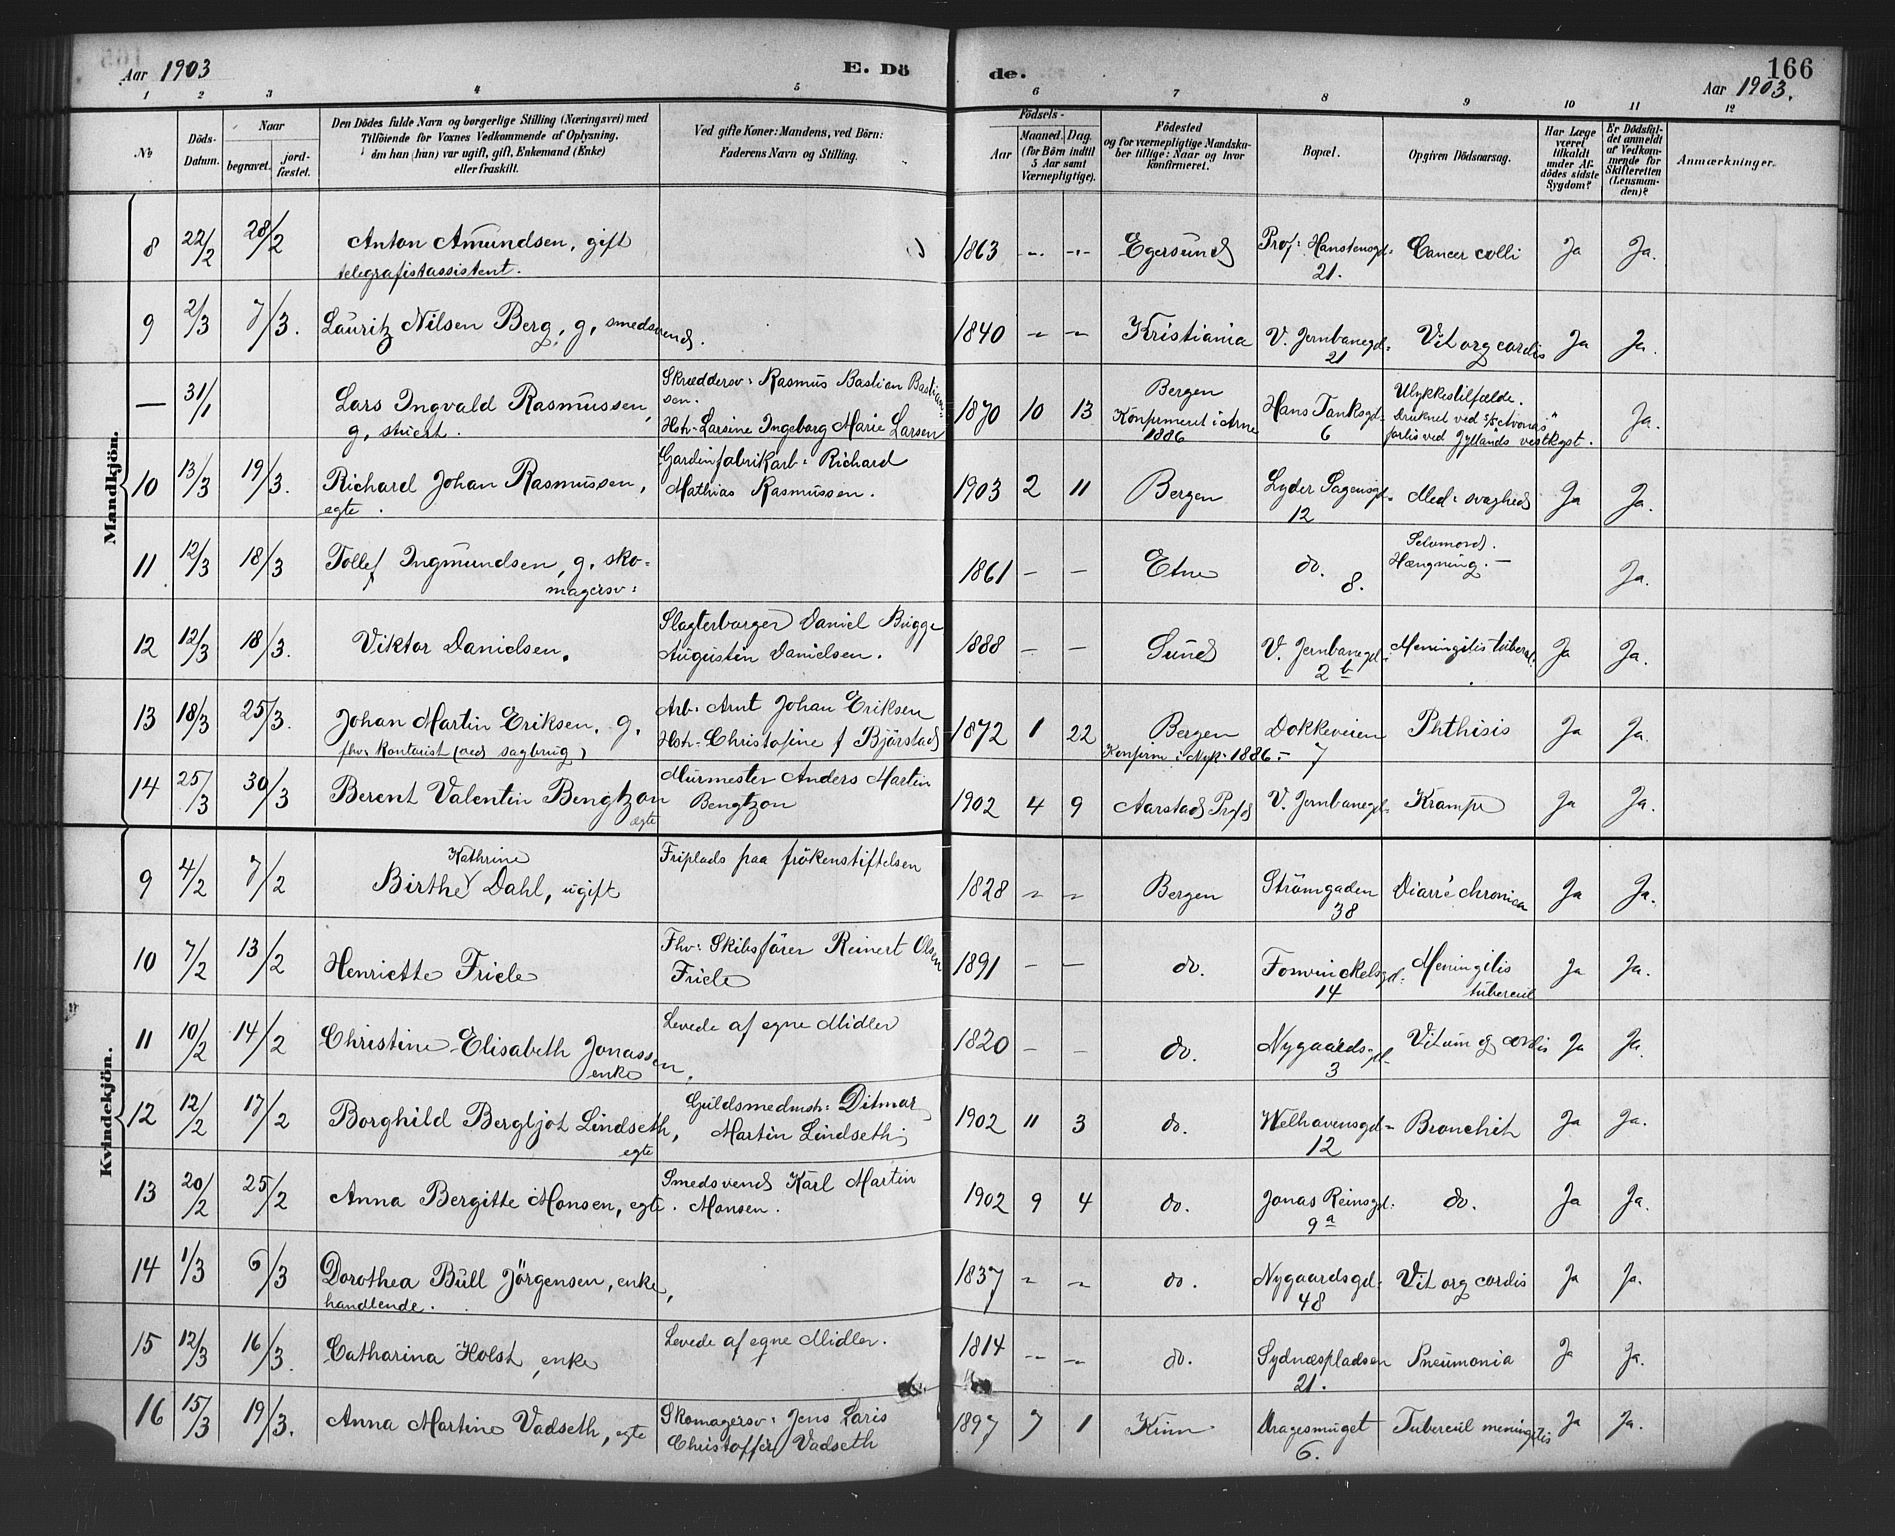 Aar 1903 E. Dö de. 166
Aar 1903.
1 2 3 4 5 6 7 8 9 10 11 12
No Döds-Datum. Naar begravet. jordfæstet.
Den Dödes fulde Navn og borgerlige Stilling (Næringsvei) med
Tilföiende for Voxnes Vedkommende af Oplysning,
om han (hun) var ugift, gift, Enkemand (Enke)
eller fraskilt.
Ved gifte Koner: Mandens, ved Börn:
Faderens Navn og Stilling.
Födsels-
Aar Maaned. Dag.
(for Börn indtil
5 Aar samt
Værnepligtige).
Födested
og for værnepligtige Mandskaber tillige: Naar og hvor
konfirmeret.
Bopæl.
Opgiven Dödsaarsag.
Har Læge
været
tilkaldt
under Afdödes sidste
Sygdom?
Er Dödsfaldet anmeldt
af Vedkommende for
Skifteretten
(Lensmanden)?
Anmærkninger.
Mandkjön.
8 22/2 28/2 Anton Amundsen, gift 1863 -"- -"- Egersund Prof: Hanstensgd: Cancer colli Ja Ja.
telegrafistassistent. 21.
9 2/3 7/3. Lauritz Nilsen Berg, g, smedsvend. 1840 " " Kristiania V. Jernbanegd: Vit org cordis Ja Ja.
21
— 31/1 Lars Ingvald Rasmussen, Skræddersv: Rasmus Bastian Bastiansen. 1870 10 13 Bergen Hans Tanksgd. Ulykkestilfælde. Ja.
g, stuert. Hstr. Larsine Ingeborg Marie Larsen Konfirmeret i Arne 6 Druknet ved S/S
1886 forlis ved Jyllands vestkyst.
10 13/3 19/3. Richard Johan Rasmussen, Gardinfabrikarb: Richard 1903 2 11 Bergen Lyder Sagensgd. Med: svaghed Ja Ja.
egte. Mathias Rasmussen. 12
11 12/3 18/3 Tollef Ingmundsen, g, skomagersv: 1861 — — Etne do. Selvmord. Ja.
8. Hængning. —
12 12/3 18/3. Viktor Danielsen. Slagterborger Daniel Brigge 1888 — — Sund V. Jernbanegd: Meningitis tubercl. Ja Ja.
Augustin Danielsen. 2 b
13 18/3 25/3. Johan Martin Eriksen, g. Arb. Arnt Johan Eriksen 1872 1 22 Bergen Dokkeveien Phthisis Ja Ja.
fhv: kontorist (ved sagbrug) Hstr. Christofine f Björstad Konfirm i Nyk: 1886 — 7
14 25/3 30/3 Berent Valentin Bengtzon Murmester Anders Martin 1902 4 9 Aarstad Prgld V. Jernbanegd: Krampe Ja Ja.
egte Bengtzon
Kvindekjön.
9 4/2 7/2 Birthe Kathrine Dahl, ugift Friplads paa frökenstiftelsen 1828 " " Bergen Strömgaden Diarré chronica Ja Ja.
38
10 7/2 13/2 Henriette Friele Fhv: Skibsfører Reinert Olsen 1891 — — do. Fosvinckelsgd: Meningitis Ja Ja.
Friele 14 tubercul
11 10/2 14/2 Christine Elisabeth Jonassen, Levede af egne Midler 1820 — — do. Nygaardsgd. Vitium og cordis Ja Ja.
enke 3
12 12/2 17/2 Borghild Bergljot Lindseth, Guldsmedmstr: Ditmar 1902 11 3 do. Welhavensgd: Bronchit Ja Ja.
egte Martin Lindseth 12
13 20/2 25/2 Anna Bergitte Monsen, egte. Smedsvend Karl Martin 1902 9 4 do. Jonas Reinsgd. do. Ja Ja.
Monsen. 9 a
14 1/3 6/3 Dorothea Bull Jörgensen, enke, 1837 " " do. Nygaardsgd: Vit org cordis Ja Ja.
handlende. 48
15 12/3 16/3. Catharina Holst, enke Levede af egne Midler. 1814 " " do. Sydnæspladsen Pneumonia Ja Ja.
21.
16 15/3 19/3. Anna Martine Vadseth, egte Skomagersv: Jens Laris 1897 7 1 Kinn Dragesmuget Tubercul meningitis Ja Ja.
Christoffer Vadseth 6.